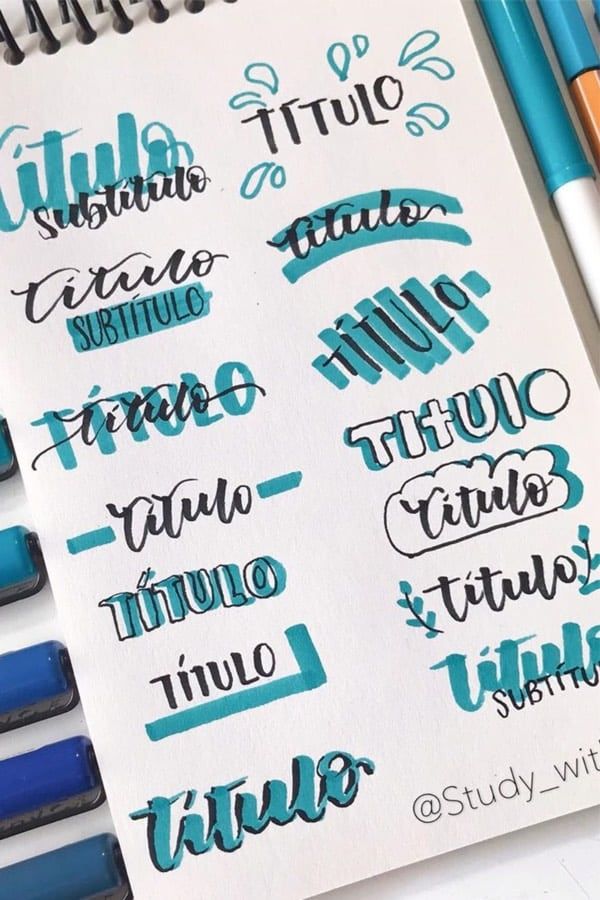 título
subtítulo
título
SUBTÍTULO
TÍTULO
título
título
TÍTULO
TÍTULO
título
TÍTULO
título
TÍTULO
TItUlO
título
título
título
SUBTÍTU
@Study_wit